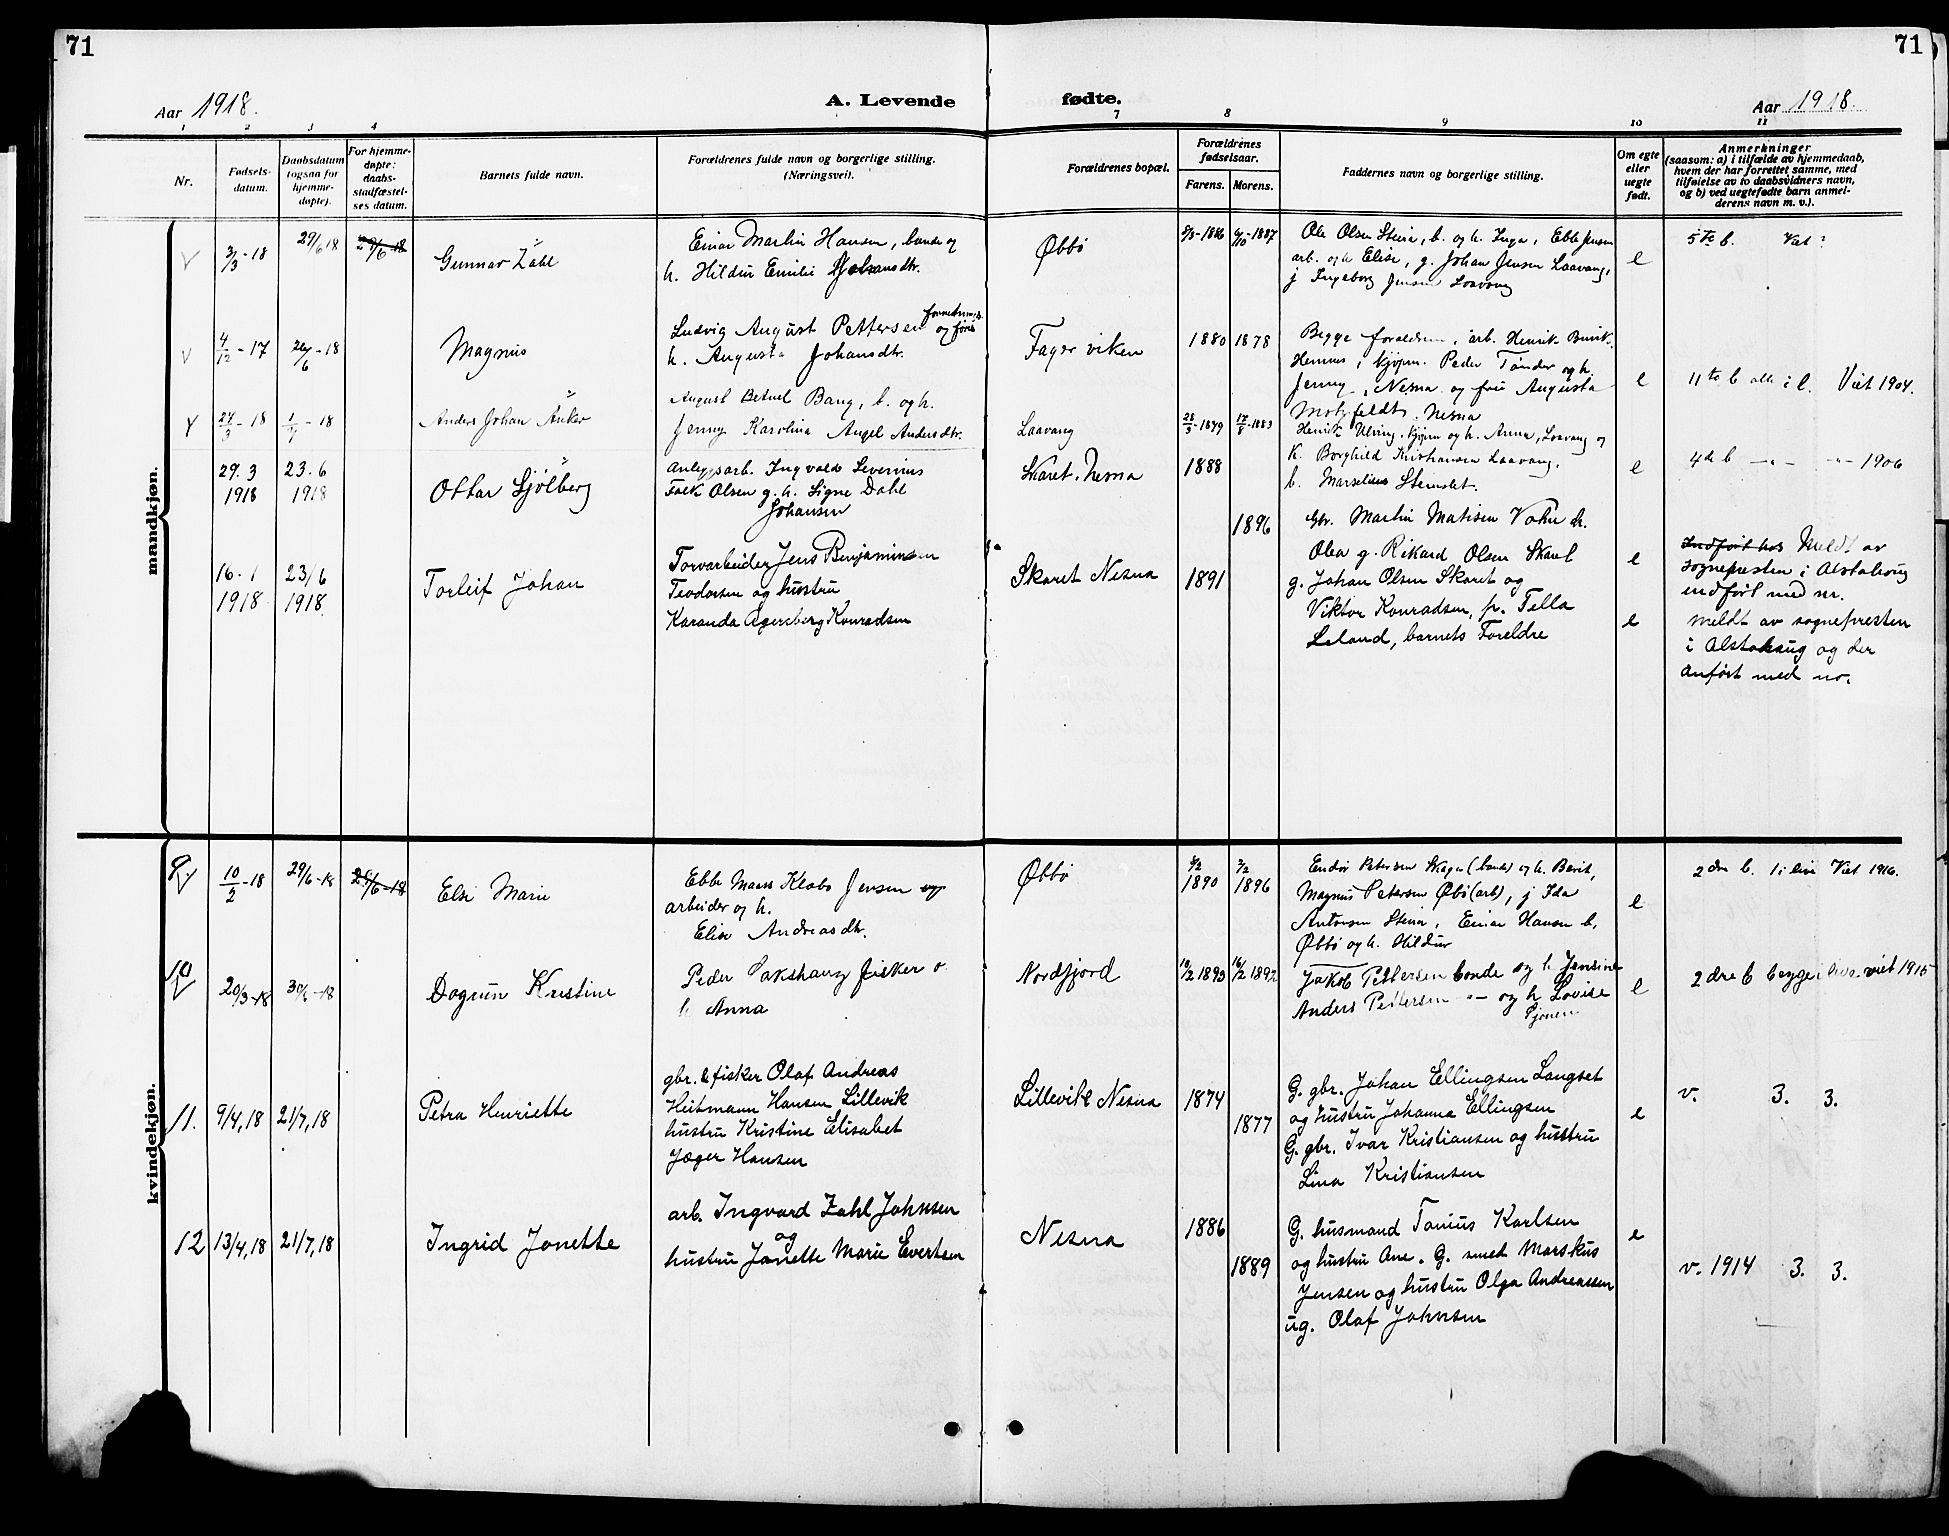 71
71
Aar 1918.
A. Levende fødte.
Aar 1918.
1 2 3 4 7 8 9 10 11
Nr.
Fødsels-
datum.
Daabsdatum
(ogsaa for
hjemme-
døpte).
For hjemme-
døpte:
daabs-
stadfæstel-
ses datum.
Barnets fulde navn.
Forældrenes fulde navn og borgerlige stilling.
(Næringsvei).
Forældrenes bopæl.
Forældrenes
fødselsaar.
Farens. Morens.
Faddernes navn og borgerlige stilling.
Om egte
eller
uegte
født.
Anmerkninger
(saasom: a) i tilfælde av hjemmedaab,
hvem der har forrettet samme, med
tilføielse av to daabsvidners navn,
og b) ved uegtefødte barn anmel-
derens navn m. v.).
mandkjøn.
V
3/3 - 18
29/6 18
29/6-18
Gunnar Zahl
Einar Martin Hansen, bonde og
h. Hildur Emilie
Øbbø
1886
1887
Ole Olsen Steira, b. og h. Inga, Ebbe Jensen
arb. og h. Elise, g. Johan Jensen Laavang,
j Ingeborg Jensen Laavang
e
5te b. Viet?
V
4/12 - 17
26/6 - 18
Magnus
Ludvig August Pettersen
h. Augusta Johansdtr.
Fagerviken
1880
1878
Begge forældrene, arb. Henrik
Hemnes, kjøpm. Peder Tønder og h.
Jenny, Nesna og frue Augusta
Motzfeldt, Nesna
e
11te b alle i l. Viet 1904.
24/3 - 18
1/7 - 18
Anders Johan Anker
August Betuel Bang, b. og h.
Jenny Karolina Angel Andersdtr.
Laavang
1879
17/8-1883
Henrik Ulving, kjøpm og h. Anna, Laavang og
K. Borghild Kristiansen Laavang,
b. Marselius
e
4de b - " - - " - 1906
29. 3
1918
23. 6
1918
Ottar Sjölberg
Anlegsarb. Ingvald Severinus
Falk Olsen g. h. Signe Dahl
Johansen
Skaret, Nesna
1888
1896
Gbr. Martin Matisen Vohn h.
Olea g. Rikard Olsen Skaret
e
Indført hos Meldt av
sognepresten i Alstahoug
indført med nr.
16. 1
1918
23/6
1918
Torleif Johan
Torvarbeider Jens Benjaminsen
Teodorsen og hustru
Karanda Agersberg Konradsen
Skaret Nesna
1891
g. Johan Olsen Skaret og
Viktor Konradsen, p. Tella
Leland, barnets Foreldre
e
meldt av sognepresten
i Alstahaug og der
anført med no.
kvindekjøn.
9
10/2 - 18
29/6-18
29/6-18
Else Marie
Ebbe Maas Klabo Jensen og
arbeider og h.
Elise Andreasdtr.
Øbbø
1890
1896
Endor Petersen Skager (bonde) og h. Berit,
Magnus Petersen Øbø (arb), j Ida
Antonsen Steira, Einar Hansen b,
Øbbø og h. Hildur
e
2den b. 1 i live Viet 1916.
10
20/3-18
30/6-18
Dagrun Kristine
Peder Sakshaug fisker o
h Anna
Nordfjord
10/2 1893
16/2 1892
Jakob Pettersen bonde og h Jensine
Anders Pettersen - " - og h Lovise
Sjonen
e
2dre b begge i live. viet 1915
11.
9/4, 18
21/7, 18
Petra Henriette
gbr. & fisker Olaf Andreas
Heitmann Hansen Lillevik
hustru Kristine Elisabet
Jæger Hansen
Lillevik Nesna
1874
1877
G. gbr. Johan Ellingsen Langset
og hustru Johanna Ellingsen
G. gbr. Ivar Kristiansen og hustru
Lina Kristiansen
e
v. 3. 3.
12
13/4, 18
21/7, 18
Ingrid Jonette
arb. Ingvard Zahl Johnsen
og
hustru Jonette Marie Evertsen
Nesna
1886
1889
G. husmand Tonius Karlsen
og hustru Ane. G. smed Marskus
Jensen og hustru Olga Andreassen
ug. Olaf Johnsen
e
v. 1914 3. 3.